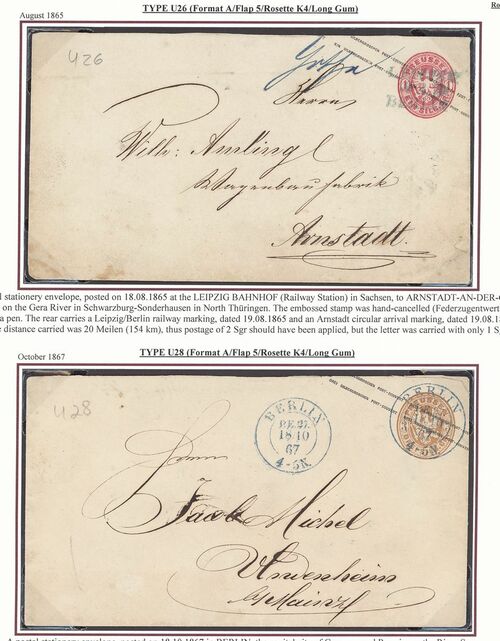 TYPE U26 (Format A/Flap 5/Rosette K4/Long Gum)
Ro
August 1865
U26
Gotha
PREUSSEN
EIN SILBERGR.
Herrn
Wilh: Amlingl
Wagenbaufabrik
Arnstadt.
l stationery envelope, posted on 18.08.1865 at the LEIPZIG BAHNHOF (Railway Station) in Sachsen, to ARNSTADT-AN-DER-G
on the Gera River in Schwarzburg-Sonderhausen in North Thüringen. The embossed stamp was hand-cancelled (Federzugentwert
a pen. The rear carries a Leipzig/Berlin railway marking, dated 19.08.1865 and an Arnstadt circular arrival marking, dated 19.08.18
e distance carried was 20 Meilen (154 km), thus postage of 2 Sgr should have been applied, but the letter was carried with only 1 Sg
TYPE U28 (Format A/Flap 5/Rosette K4/Long Gum)
October 1867
U28
BERLIN
P.E.27.
18 10
67
4-5N.
BERLIN
67
4-5N.
Herrn
Jacob Michel
Undenheim
b/Mainz